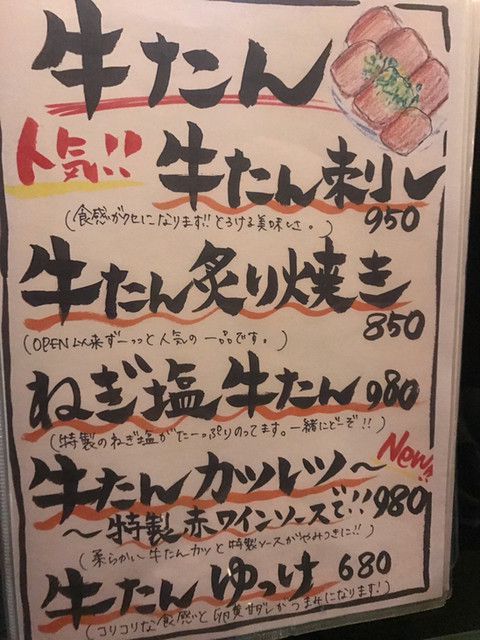 牛たん
人気!!
牛たん刺し
950
(食感がクセになります!!とろける美味しさ。)
牛たん炙り焼き
850
(OPEN以来ずーっっと人気の一品です。)
ねぎ塩牛たん 980
(特製のねぎ塩がたーっぷりのってます。一緒にどーぞ!!)
New!!
牛たんカツレツ〜
〜特製赤ワインソースで!! 980
(柔らかい牛たんカツと特製ソースがやみつきに!!)
牛たんゆっけ 680
(コリコリな食感と卵黄甘ダレがつまみになります!)